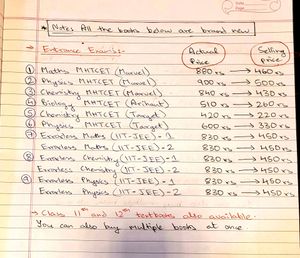 * Note: All the books below are brand new
→ Entrance Exams:- Actual price Selling price
① Maths MHTCET (Marvel) 880 rs → 460 rs
② Physics MHTCET (Marvel) 900 rs → 500 rs
③ Chemistry MHTCET (Marvel) 840 rs → 430 rs
④ Biology MHTCET (Arihant) 510 rs → 260 rs
⑤ Chemistry MHTCET (Target) 420 rs → 220 rs
⑥ Physics MHTCET (Target) 600 rs → 330 rs
⑦ Errorless Maths (IIT-JEE) - 1 830 rs → 450 rs
Errorless Maths (IIT-JEE) - 2 830 rs → 450 rs
⑧ Errorless Chemistry (IIT-JEE) - 1 830 rs → 450 rs
Errorless Chemistry (IIT-JEE) - 2 830 rs → 450 rs
⑨ Errorless Physics (IIT-JEE) - 1 830 rs → 450 rs
Errorless Physics (IIT-JEE) - 2 830 rs → 450 rs
→ Class 11th and 12th textbooks also available.
You can also buy multiple books at once